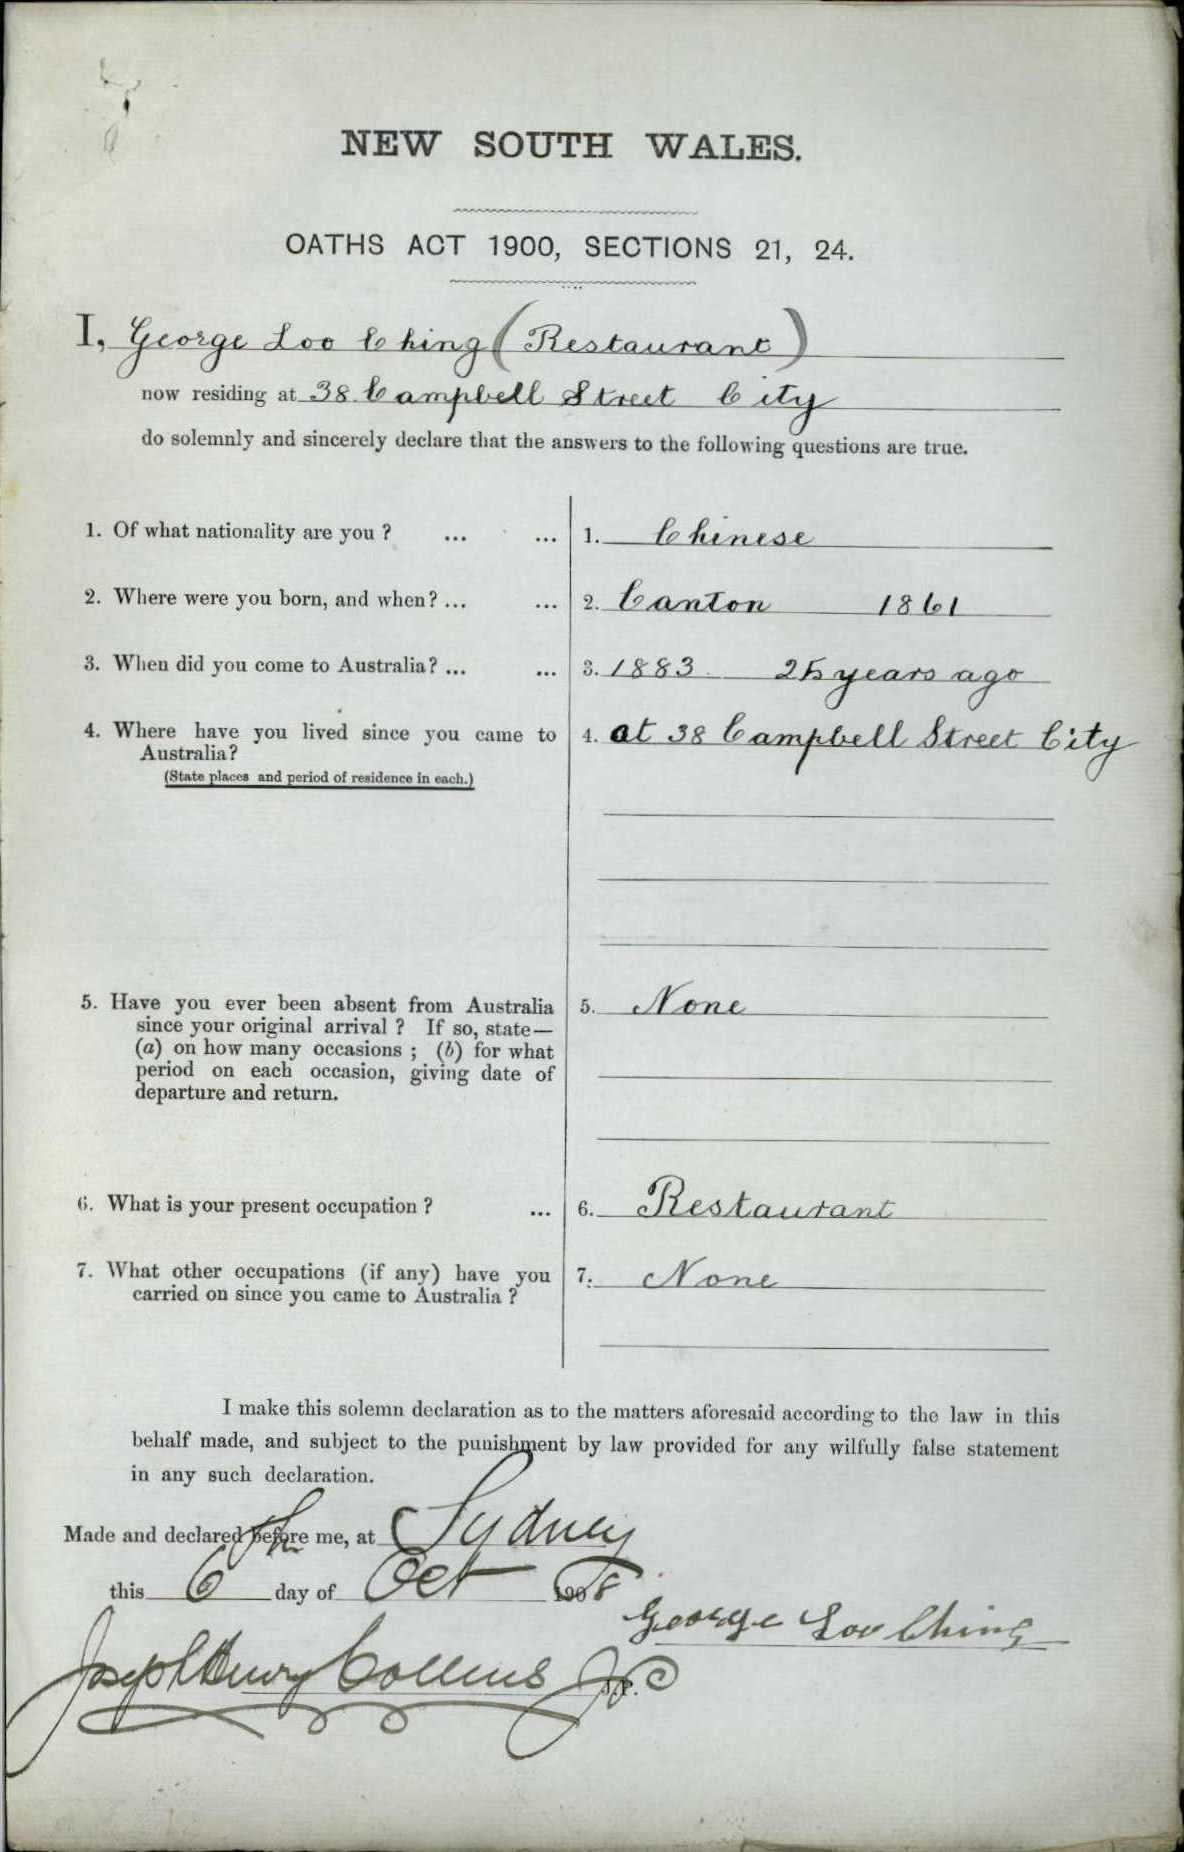 NEW SOUTH WALES.
OATHS ACT 1900, SECTIONS 21, 24.
I, George Loo Ching (Restaurant)
now residing at 38 Campbell Street City
do solemnly and sincerely declare that the answers to the following questions are true.
1. Of what nationality are you ? ... ... 1. Chinese
2. Where were you born, and when? ... ... 2. Canton 1861
3. When did you come to Australia? ... ... 3. 1883 25 years ago
4. Where have you lived since you came to 4. at 38 Campbell Street City
Australia?
(State places and period of residence in each.)
5. Have you ever been absent from Australia 5. None
since your original arrival ? If so, state—
(a) on how many occasions ; (b) for what
period on each occasion, giving date of
departure and return.
6. What is your present occupation ? ... 6. Restaurant
7. What other occupations (if any) have you 7. None
carried on since you came to Australia ?
I make this solemn declaration as to the matters aforesaid according to the law in this
behalf made, and subject to the punishment by law provided for any wilfully false statement
in any such declaration.
Made and declared before me, at Sydney
this 6th day of Oct 1908
George Loo Ching
Joseph Henry Collins J.P.